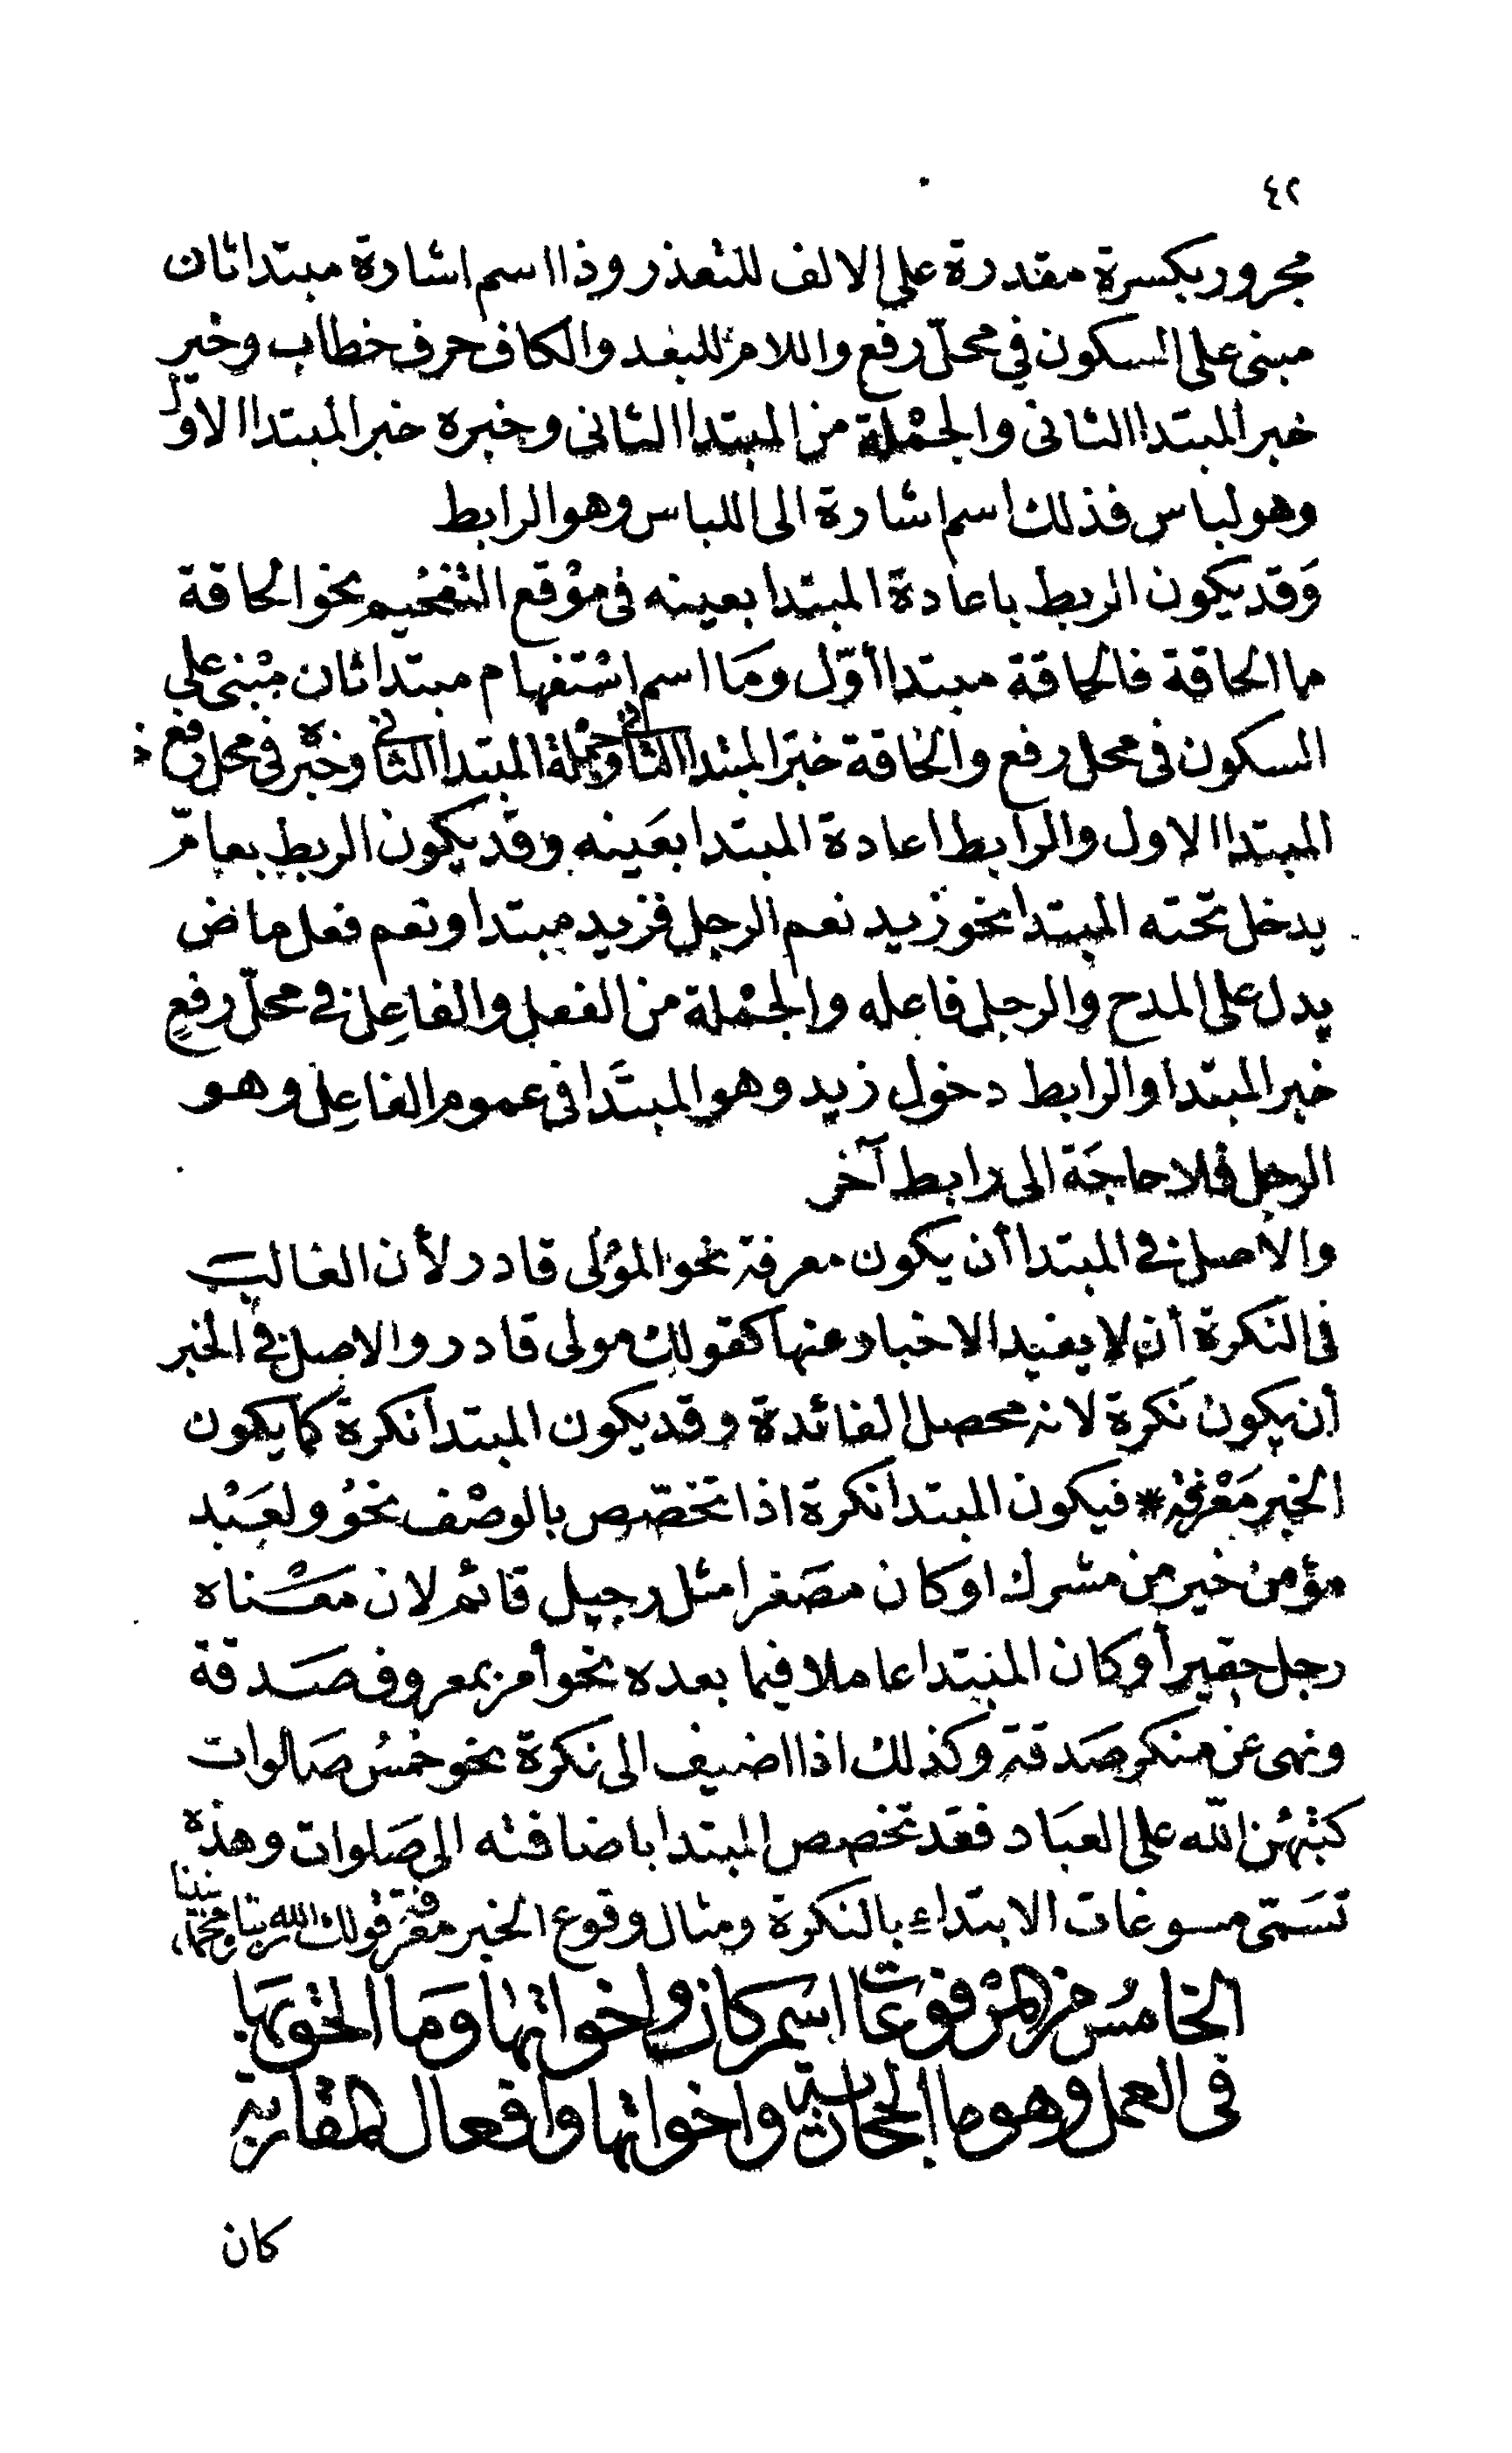 ٤٢
مجرور بكسرة مقدرة على الالف للتعذر وذا اسم اشارة مبتدا ثان
مبنى على السكون في محلّ رفع واللام للبعد والكاف حرف خطاب وخير
خبر المبتدا الثانى والجمْلة من المبتدا الثانى وخبره خبر المبتدا الاوّل
وهو لباس فذلك اسم اشارة الى اللباس وهو الرابط
وَقد يكون الربط باعادة المبتدا بعينه فى موْقع التفخيم نحو الحاقة
ما الحاقة فالحاقة مبتدا أوّل وَمَا اسم اسْتفهام مبتدا ثان مبْنى على
السكون فى محل رفع والحاقة خبر المبتدا الثانى وجملة المبتدا الثانى وخبره فى محل رفع خ
المبتدا الاول والرابط اعادة المبتدا بعَينه وقد يكون الربط بعامّ
يدخل تحته المبتدا نحو زيد نعم الرجل فزيد مبتدا ونعم فعل ماض
يدل على المدح والرجل فاعله والجمْلة من الفعل والفاعِل في محلّ رفع
خبر المبتدا والرابط دخول زيد وهو المبتَدا فى عموم الفاعِل وهو
الرجل فلا حاجَة الى رابط آخر
والأصل في المبتدا أن يكون معرفة نحو المؤلى قادر لأن الغالب
فى النكرة أن لا يفيد الاخبار عنها كقولك مولى قادر والاصل في الخبر
أن يكون نَكرة لانه محصل الفائدة وقد يكون المبتدأ نكرة كما يكون
الخبر مَعْرفة * فيكون المبتدأ نكرة اذا تخصّص بالوصْف نحوُ ولعَبْد
مؤمن خير من مشرك او كان مصَغرا مثل رجيل قائم لان معْناه
رجل حقير أو كان المبتدا عاملا فيما بعده نحو أمر بمعروف صَدقة
ونهى عن منكر صَدقة وكذلك اذا اضيف الى نكرة نحو خمسُ صَلوات
كتبهُن اللّه على العبَاد فقد تخصص المبتدا باضافته الى صَلوات وهذه
تسَمّى مسوغات الابتداء بالنكرة ومثال وقوع الخبر معرفة قولك الله ربنا ومحمد نبينا
الخامسُ من المرْفوعَات اسْم كان واخواتها وَما الحق بهَا
في العمل وهو ما الحجازية واخواتها وافعال المقاربة
كان